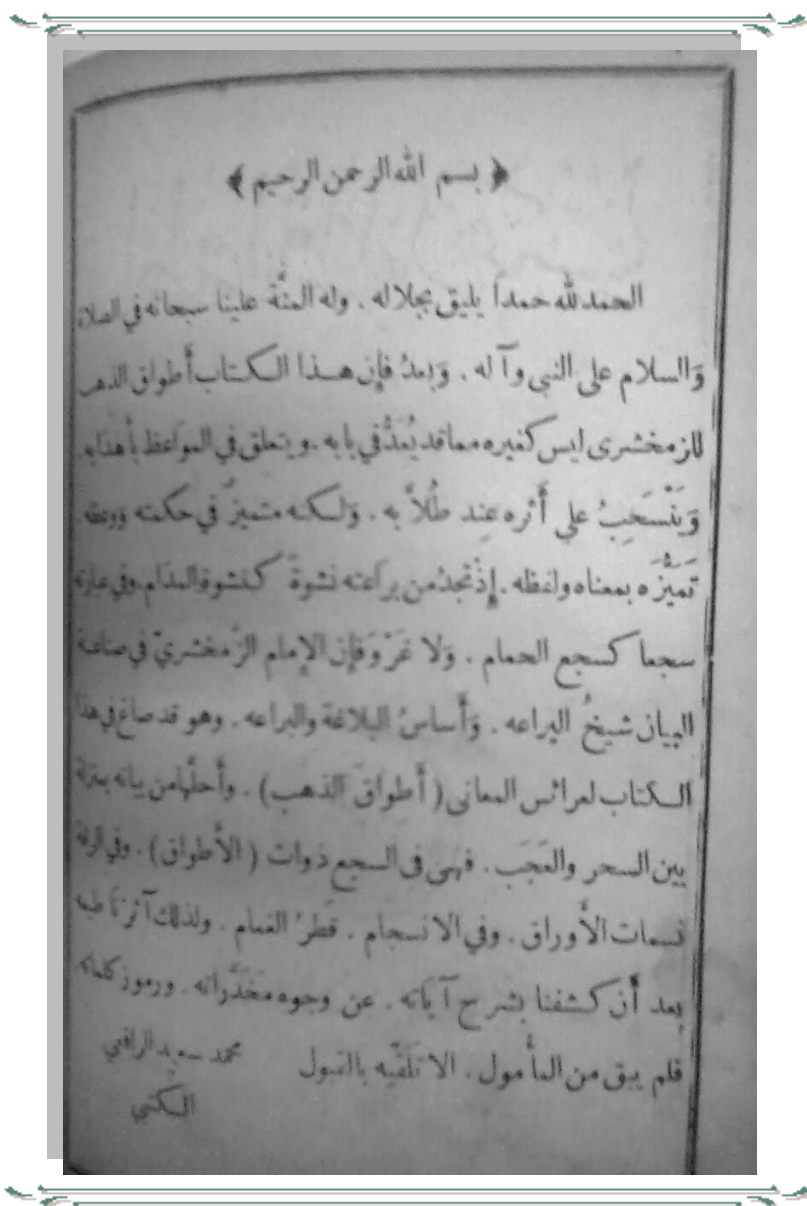 ﴿ بسم الله الرحمن الرحيم ﴾
الحمد لله حمداً يليق بجلاله . وله المنَّة علينا سبحانه في الصلاة
وَالسلام على النبي وآله . وَبعدُ فإِن هذا الكتاب أطواق الذهب
للزمخشرى ليس كغيره مما قد يُعَدُّ في بابه . ويتعلق في المواعظ بأهدابه
وَيَنْسَحِبُ على أَثره عِند طُلاَّ به . وَلكنه متميزٌ في حكمته ووعظه
تَمَيُّزَه بمعناه ولفظه . إِذْ تجدُ من براعته نشوةً كنشوة المدام . وفي عبارته
سجعا كسجع الحمام . وَلا غَرْوَ فإِن الإِمام الزّمخشريّ في صناعة
البيان شيخُ اليراعه . وَأَساسُ البلاغة والبراعه . وهو قد صاغ في هذا
الكتاب لعرائس المعانى ( أطواقَ الذهب ) . وأحلَّها من بيانه بمنزلة
بين السحر والعَجَب . فهى فى السجع ذوات ( الأطواق ) . وفي الرقة
نسمات الأَوراق . وفي الانسجام . قَطرُ الغمام . ولذلك آثرنا طبعه
بعد أَن كشفنا بشرح آياته . عن وجوه مخَدَّراته . ورموز كلماته
فلم يبق من المأمول . الا تَلَقّيه بالقبول محمد سعيد الرافعي
الكتبي